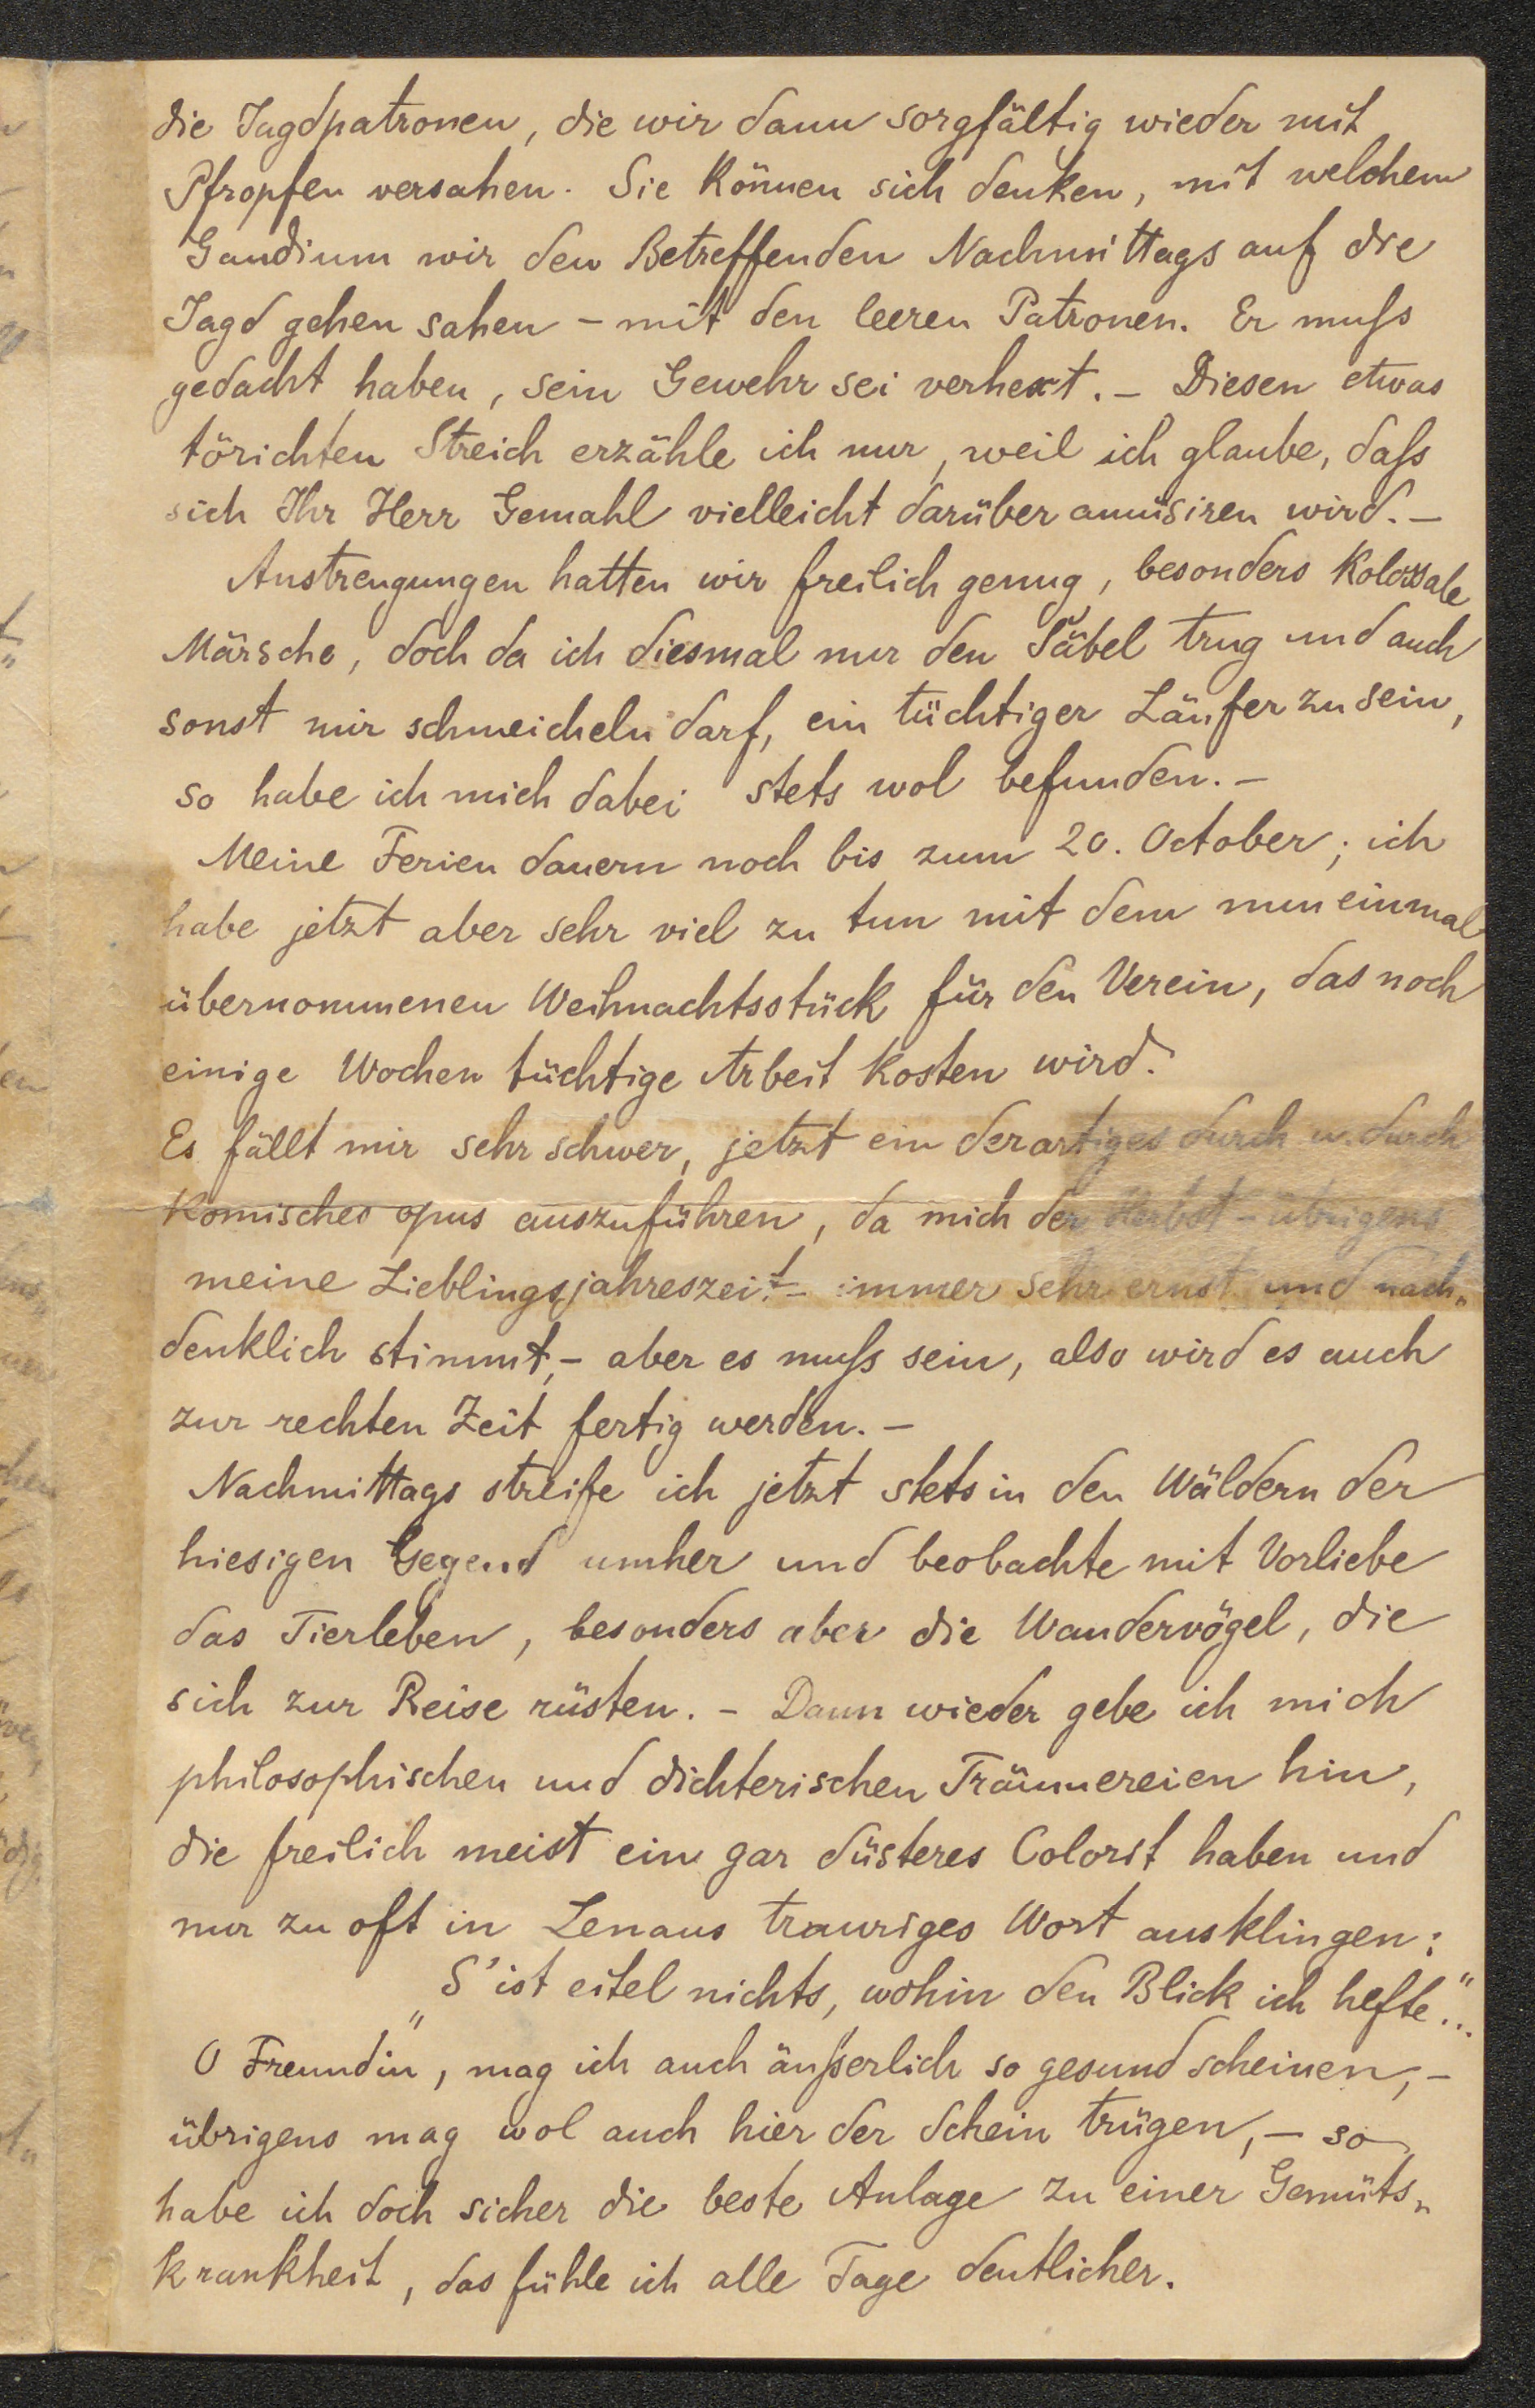 die Jagdpatronen, die wir dann sorgfältig wieder mit
Pfropfen versahen. Sie können sich denken, mit welchem
Gaudium wir den Betreffenden Nachmittags auf die
Jagd gehen sahen – mit den leeren Patronen. Er muſs
gedacht haben, sein Gewehr sei verhext. – Diesen etwas
törichten Streich erzähle ich nur, weil ich glaube, daſs
sich Ihr Herr Gemahl vielleicht darüber amüsiren wird. –
Anstrengungen hatten wir freilich genug, besonders kolossale
Märsche, doch da ich diesmal nur den Säbel trug und auch
sonst mir schmeicheln darf, ein tüchtiger Läufer zu sein,
so habe ich mich dabei stets wol befunden. –
Meine Ferien dauern noch bis zum 20. October; ich
habe jetzt aber sehr viel zu tun mit dem nun einmal
übernommenen Weihnachtsstück für den Verein, das noch
einige Wochen tüchtige Arbeit kosten wird.
Es fällt mir sehr schwer, jetzt ein derartiges durch u. durch
komisches opus auszuführen, da mich der Herbst – übrigens
meine Lieblingsjahreszeit – immer sehr ernst und nach„
denklich stimmt, – aber es muſs sein, also wird es auch
zur rechten Zeit fertig werden. –
Nachmittags streife ich jetzt stets in den Wäldern der
hiesigen Gegend umher und beobachte mit Vorliebe
das Tierleben, besonders aber die Wandervögel, die
sich zur Reise rüsten. – Dann wieder gebe ich mich
philosophischen und dichterischen Träumereien hin,
die freilich meist ein gar düsteres Colorit haben und
nur zu oft in Lenaus trauriges Wort ausklingen:
„S'ist eitel nichts, wohin den Blick ich hefte"...
O Freundin, mag ich auch äuſserlich so gesund scheinen, –
übrigens mag wol auch hier der Schein trügen, – so
habe ich doch sicher die beste Anlage zu einer Gemüts„
krankheit, das fühle ich alle Tage deutlicher.